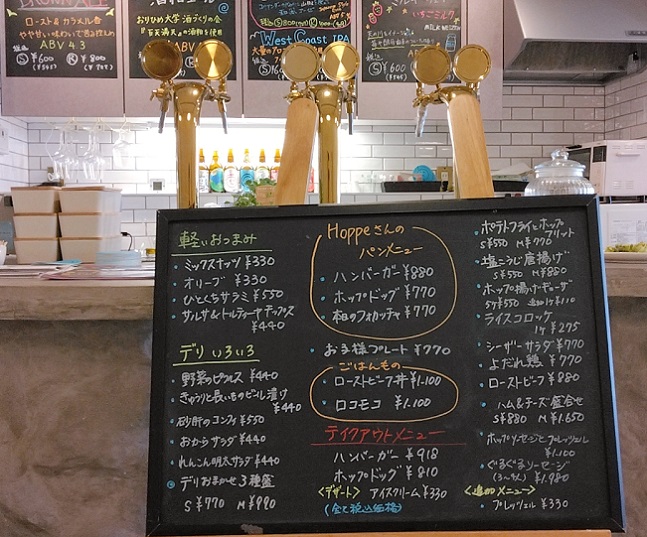 ロースト&カラメル香
やや甘い味わいで黒ビール
ABV 4.3
¥600
¥800
おりひめ大学 酒づくりの会
『百天満天』の酒粕を使用
ABV
West Coast IPA
¥600
いちごミルク
¥600
軽いおつまみ
・ミックスナッツ ¥330
・オリーブ ¥330
・ひとくちサラミ ¥550
・サルサ&トルティーヤチップス
¥440
デリいろいろ
・野菜のピクルス ¥440
・きゅうりと長いものビール漬け
¥440
・砂肝のコンフィ ¥550
・おからサラダ ¥440
・れんこん明太サラダ ¥440
・デリおまかせ3種盛
S ¥770 M ¥990
Hoppeさんの
パンメニュー
・ハンバーガー ¥880
・ホップドッグ ¥770
・本日のフォカッチャ ¥770
・お子様プレート ¥770
ごはんもの
・ローストビーフ丼 ¥1.100
・ロコモコ ¥1.100
テイクアウトメニュー
ハンバーガー ¥918
ホップドッグ ¥810
<デザート> アイスクリーム ¥330
(全て税込価格)
・ポテトフライとホップ
フリット
S ¥550 M ¥770
・塩こうじ唐揚げ
S ¥550 M ¥880
・ホップ揚げギョーザ
5ケ ¥550 追加1ケ ¥110
・ライスコロッケ
1ケ ¥275
・シーザーサラダ ¥770
・よだれ鶏 ¥770
・ローストビーフ ¥880
・ハム&チーズ盛合せ
S ¥880 M ¥1.650
・ホップソーセージとプレッツェル
¥1.100
・ぐるぐるソーセージ
(3〜4人) ¥1,980
<追加メニュー>
・プレッツェル ¥330